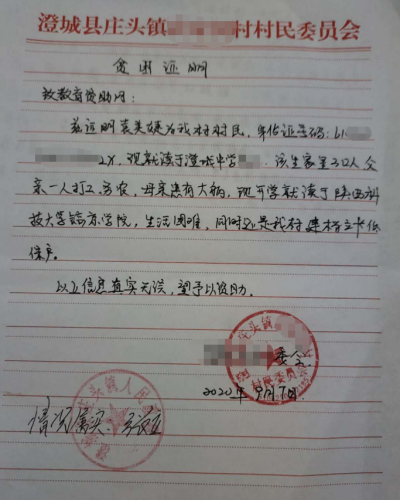 澄城县庄头镇 村村民委员会
贫困证明
致教育资助网:
兹证明袁美婕为我村村民,身份证号码:61
2X,现就读于澄城中学 。该生家里3口人,父
亲一人打工务农,母亲患有大病,现开学就读于陕西科
技大学镐京学院,生活困难,同时还是我村建档立卡低
保户。
以上信息真实无误,望予以资助。
庄头镇
委会
村民委员
2020年9月7日
庄头镇人民
情况属实。